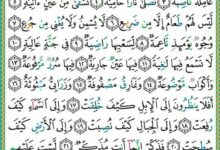 نَّاصِبَةٌ ٣ تَصْلَىٰ نَارًا حَامِيَةً ٤ تُسْقَىٰ مِنْ عَيْنٍ ءَانِيَةٍ ٥
لَّيْسَ لَهُمْ طَعَامٌ إِلَّا مِن ضَرِيعٍ ٦ لَّا يُسْمِنُ وَلَا يُغْنِي مِن جُوعٍ ٧
وُجُوهٌ يَوْمَئِذٍ نَّاعِمَةٌ ٨ لِّسَعْيِهَا رَاضِيَةٌ ٩ فِي جَنَّةٍ عَالِيَةٍ ١٠
لَّا تَسْمَعُ فِيهَا لَٰغِيَةً ١١ فِيهَا عَيْنٌ جَارِيَةٌ ١٢ فِيهَا سُرُرٌ مَّرْفُوعَةٌ ١٣
وَأَكْوَابٌ مَّوْضُوعَةٌ ١٤ وَنَمَارِقُ مَصْفُوفَةٌ ١٥ وَزَرَابِيُّ مَبْثُوثَةٌ ١٦
أَفَلَا يَنظُرُونَ إِلَى الْإِبِلِ كَيْفَ خُلِقَتْ ١٧ وَإِلَى السَّمَاءِ كَيْفَ
رُفِعَتْ ١٨ وَإِلَى الْجِبَالِ كَيْفَ نُصِبَتْ ١٩ وَإِلَى الْأَرْضِ كَيْفَ
سُطِحَتْ ٢٠ فَذَكِّرْ إِنَّمَا أَنتَ مُذَكِّرٌ